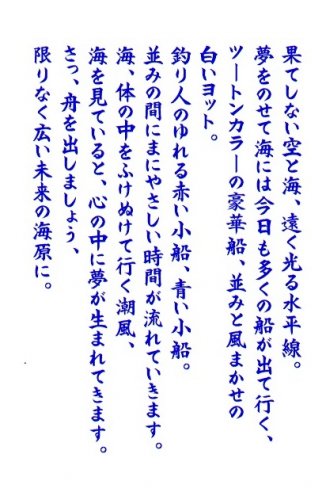 果てしない空と海、遠く光る水平線。
夢をのせて海には今日も多くの船が出て行く、
ツートンカラーの豪華船、並みと風まかせの
白いヨット。
釣り人のゆれる赤い小船、青い小船。
並みの間にまにやさしい時間が流れていきます。
海、体の中をふけぬけて行く潮風、
海を見ていると、心の中に夢が生まれてきます。
さっ、舟を出しましょう、
限りなく広い未来の海原に。